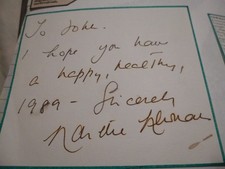 To John.
I hope you have
a happy, healthy,
1989 - Sincerely